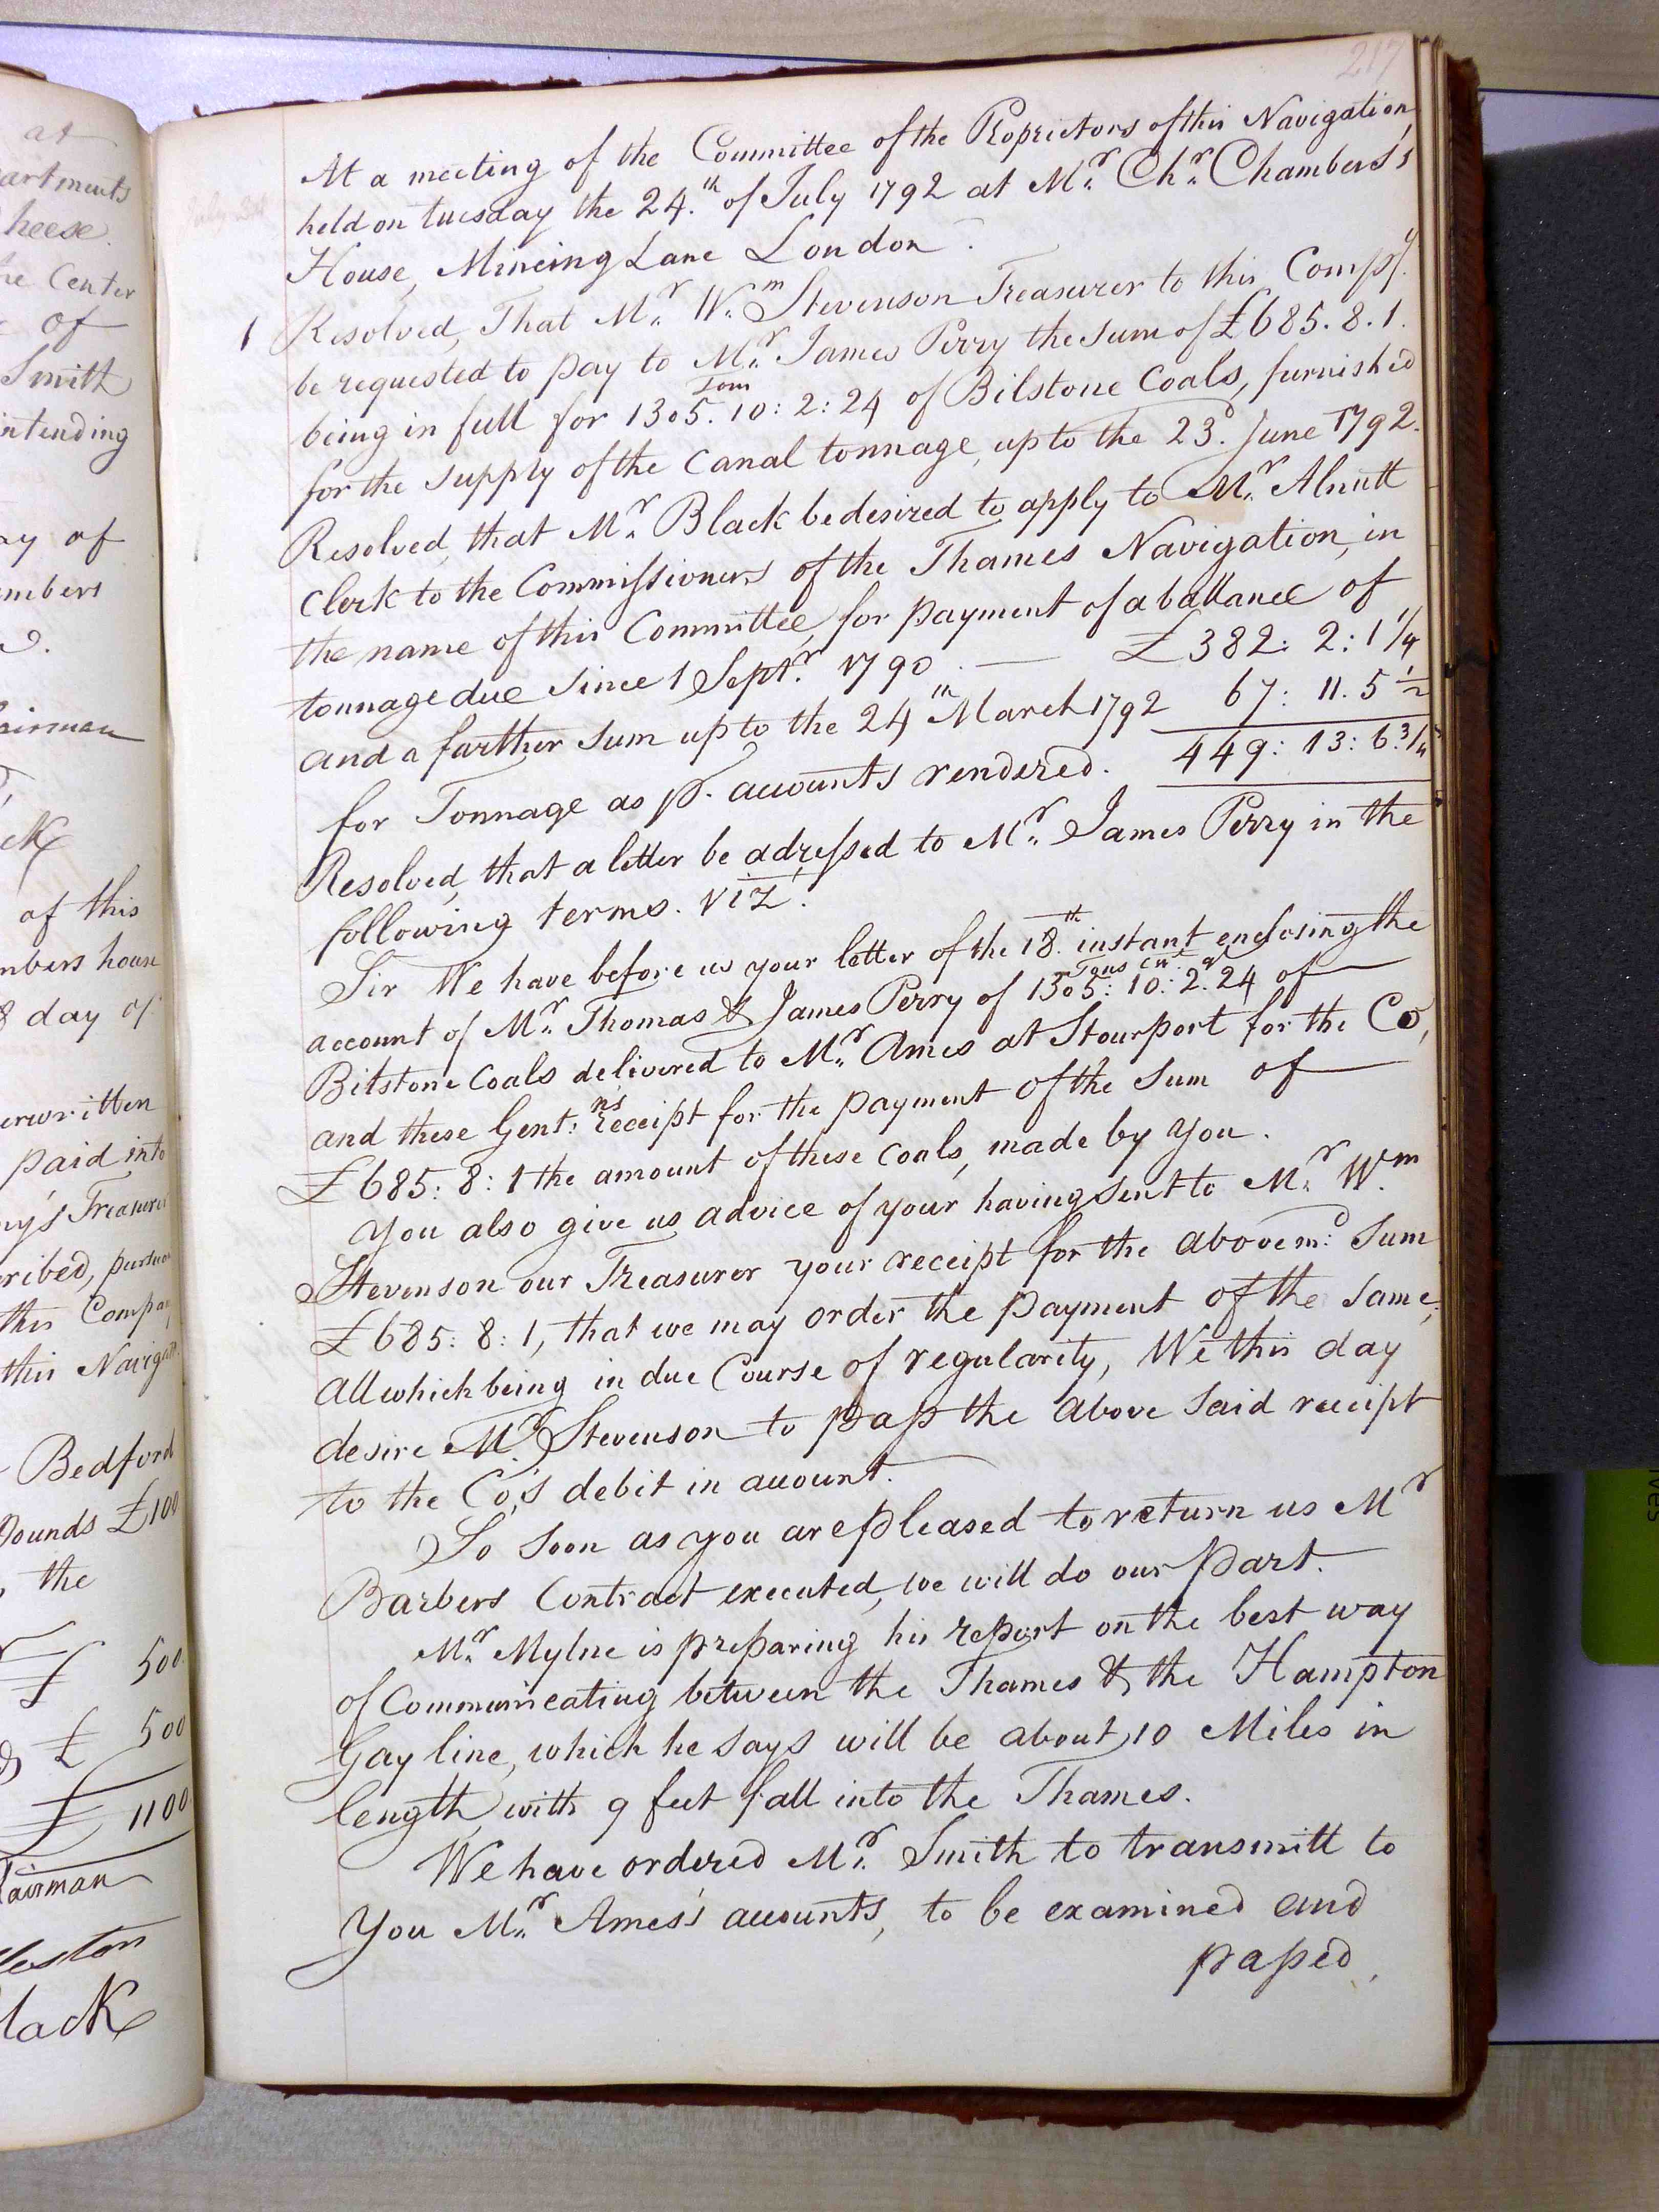 at
artments
heese.
he Center
of
Smith
intending
ay of
mbers
airman
ck
of this
mbers house
8 day of
erwritten
paid into
ny's Treasurer
cribed, pursuan
this Compa
this Navigat
Bedford
Pounds £100
, the
£ 500.
£ 500
£ 1100
airman
leston
lack
217
July 24
At a meeting of the Committee of the Proprietors of this Navigation,
held on tuesday the 24.th of July 1792 at Mr. Chr. Chambers's
House, Mincing Lane London.
1 Resolved, That Mr. Wm. Stevenson Treasurer to this Compy.
be requested to pay to Mr. James Perry the Sum of £685.8.1.
being in full for 1305.Tons 10:2:24 of Bilstone Coals, furnish'd
for the supply of the Canal tonnage, up to the 23.d June 1792.
Resolved, that Mr. Black be desired to apply to Mr. Alnutt
Clerk to the Commissioners of the Thames Navigation, in
the name of this Committee, for payment of a ballance of
tonnage due since 1 Septr. 1790. — £382:2:1 1/4
and a farther sum up to the 24th March 1792 67:11.5 1/2
for Tonnage as p. accounts rendered. 449:13:6.3/4
Resolved, that a letter be adressed to Mr. James Perry in the
following terms. viz.
Sir We have before us your letter of the 18.th instant enclosing the
account of Mr. Thomas & James Perry of 1305:Tons 10:Cwt 2.qr 24 of
Bilstone Coals delivered to Mr. Ames at Stourport for the Co,
and these Gent:ns receipt for the payment of the Sum of
£685:8:1 the amount of these coals, made by you.
You also give us advice of your having sent to Mr. Wm.
Stevenson our Treasurer your receipt for the abovem:d Sum
£685:8:1, that we may order the payment of the same;
all which being in due Course of regularity, We this day
desire Mr. Stevenson to pass the above said receipt
to the Co,'s debit in account.
So soon as you are pleased to return us Mr
Barbers Contract executed, we will do our part.
Mr. Mylne is preparing his report on the best way
of Communicating between the Thames & the Hampton
Gay line, which he says will be about 10 Miles in
length, with 9 feet fall into the Thames.
We have ordered Mr. Smith to transmitt to
you Mr. Ames's accounts, to be examined and
passed,